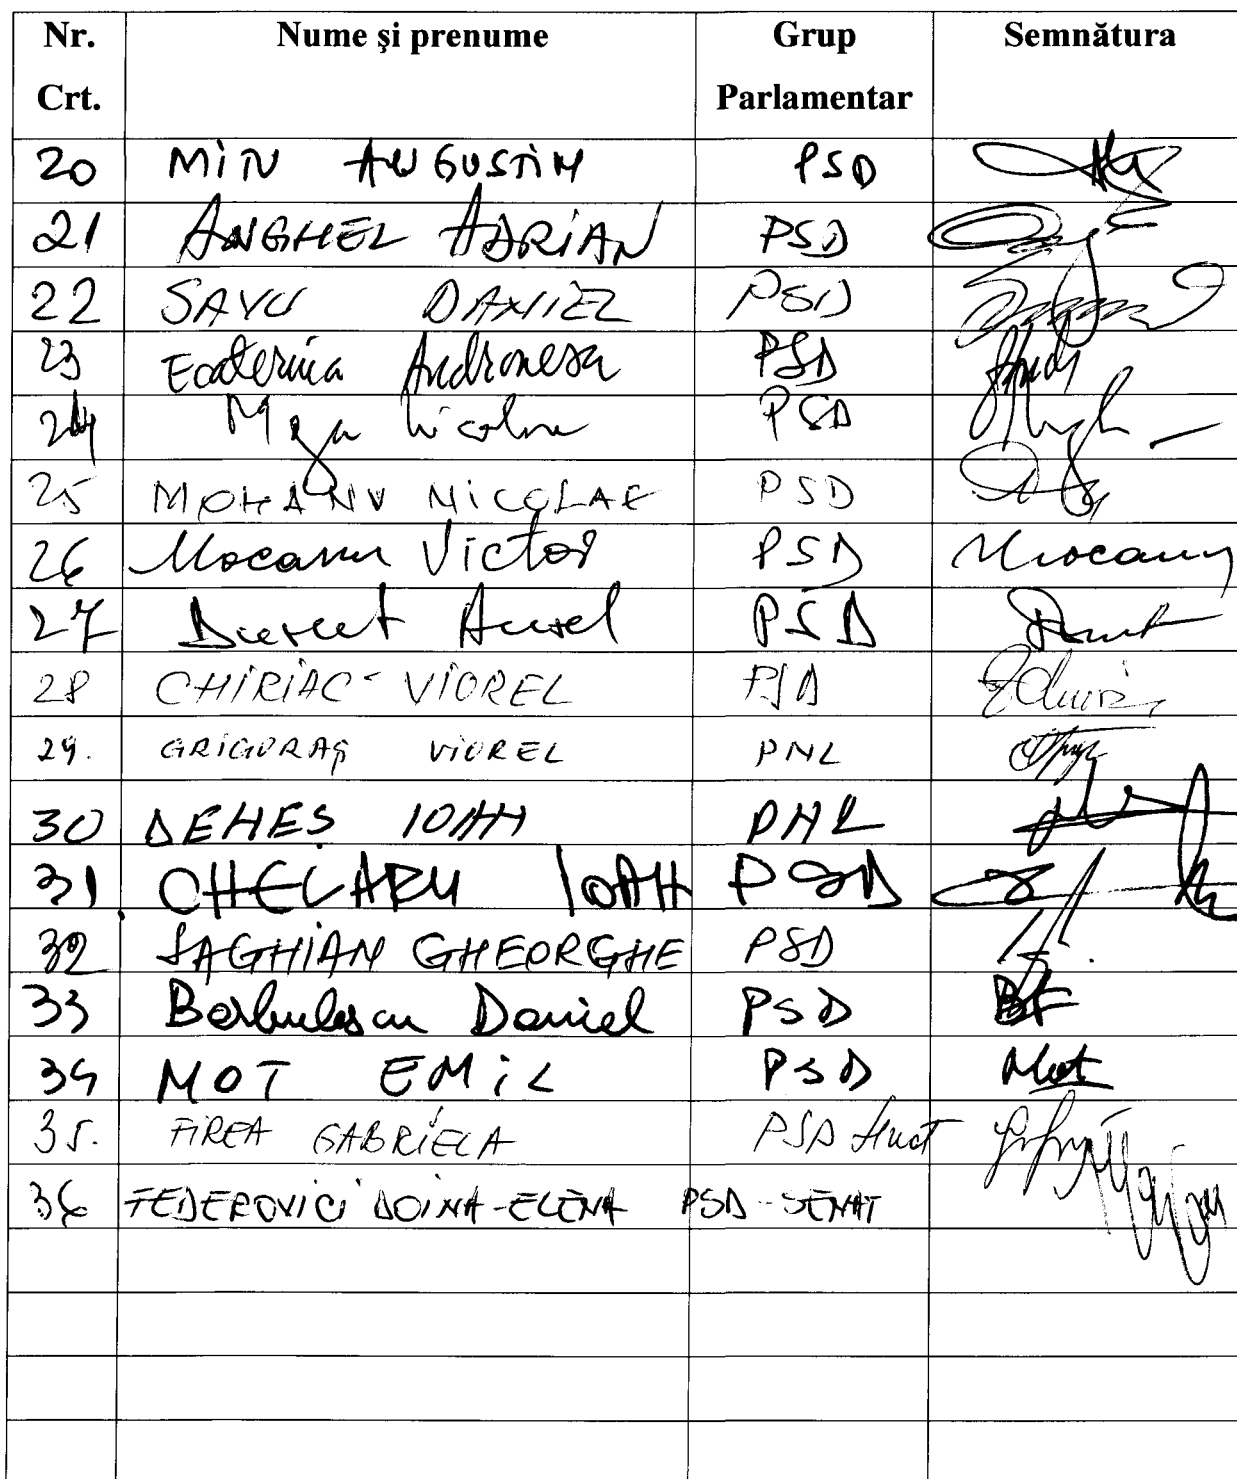 Nr. Crt. Nume şi prenume Grup Parlamentar Semnătura
20 MiTU AUGUSTIN PSD
21 ANGHEL ADRIAN PSD
22 SAVU DANIEL PSD
23 Ecaterina Andronescu PSD
24 Moga Nicolae PSD
25 MOHANU NICOLAE PSD
26 Mocanu Victor PSD Mocanu
27 Duruț Aurel PSD
28 CHIRIAC VIOREL PSD
29. GRIGORAŞ VIOREL PNL
30 DENEŞ IOAN PNL
31 CHELARU IOAN PSD
32 SAGHIAN GHEORGHE PSD
33 Barbulescu Daniel PSD
34 MOT EMiL PSD Mot
35. FIREA GABRIELA PSD
36 FEDEROVICI DOINA-ELENA PSD-SENAT